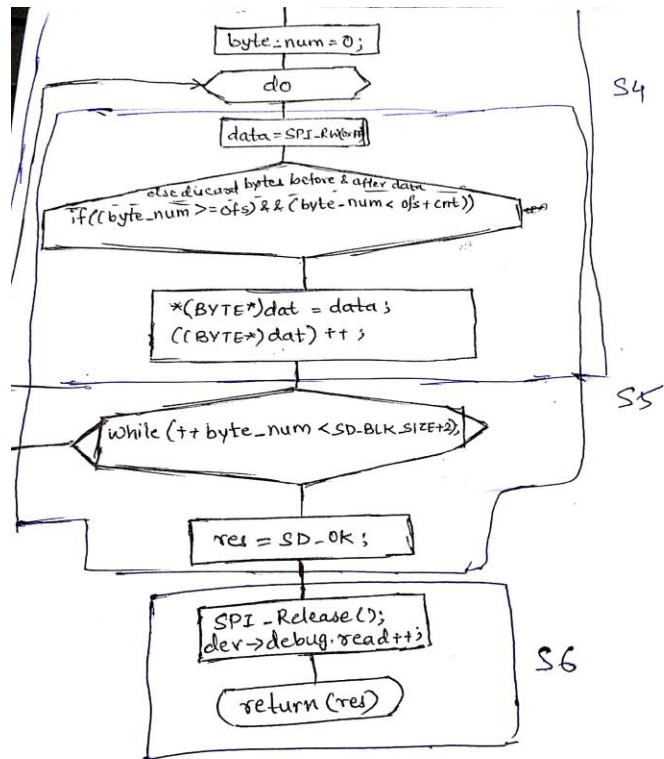 byte_num=0;
do
S4
data=SPI_RW(0xFF)
else discard bytes before & after data
if((byte_num >= ofs) && (byte_num < ofs+cnt))
*(BYTE*)dat = data;
((BYTE*)dat)++;
S5
while (++byte_num < SD_BLK_SIZE+2);
res = SD_OK;
SPI_Release();
dev->debug.read++;
S6
return (res)